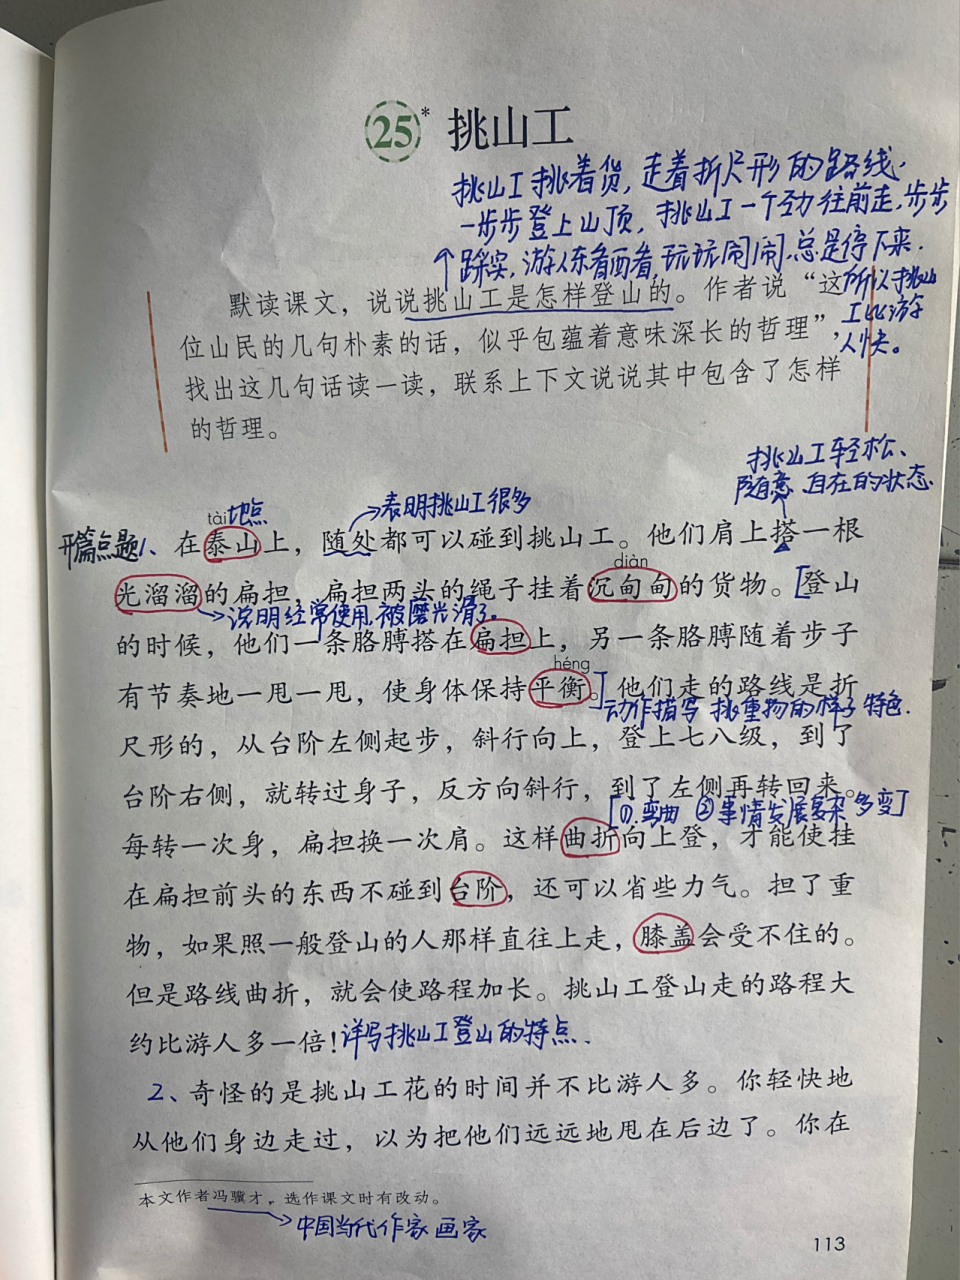 25* 挑山工
挑山工挑着货,走着折尺形的路线,
一步步登上山顶,挑山工一个劲往前走,步步
踩实,游人东看西看,玩玩闹闹,总是停下来.
所以挑山
工比游
人快。
默读课文，说说挑山工是怎样登山的。作者说“这
位山民的几句朴素的话，似乎包蕴着意味深长的哲理”，
找出这几句话读一读，联系上下文说说其中包含了怎样
的哲理。
挑山工轻松、
随意、自在的状态.
表明挑山工很多
地点
tài
开篇点题
1、在泰山上，随处都可以碰到挑山工。他们肩上搭一根
diàn
光溜溜的扁担，扁担两头的绳子挂着沉甸甸的货物。[登山
说明经常使用,被磨光滑了。
的时候，他们一条胳膊搭在扁担上，另一条胳膊随着步子
héng
有节奏地一甩一甩，使身体保持平衡。]他们走的路线是折
动作描写 挑重物的样子 特色.
尺形的，从台阶左侧起步，斜行向上，登上七八级，到了
台阶右侧，就转过身子，反方向斜行，到了左侧再转回来。
[①.弯曲 ②事情发展复杂多变]
每转一次身，扁担换一次肩。这样曲折向上登，才能使挂
在扁担前头的东西不碰到台阶，还可以省些力气。担了重
物，如果照一般登山的人那样直往上走，膝盖会受不住的。
但是路线曲折，就会使路程加长。挑山工登山走的路程大
约比游人多一倍！详写挑山工登山的特点.
2、奇怪的是挑山工花的时间并不比游人多。你轻快地
从他们身边走过，以为把他们远远地甩在后边了。你在
本文作者冯骥才，选作课文时有改动。
中国当代作家 画家
113